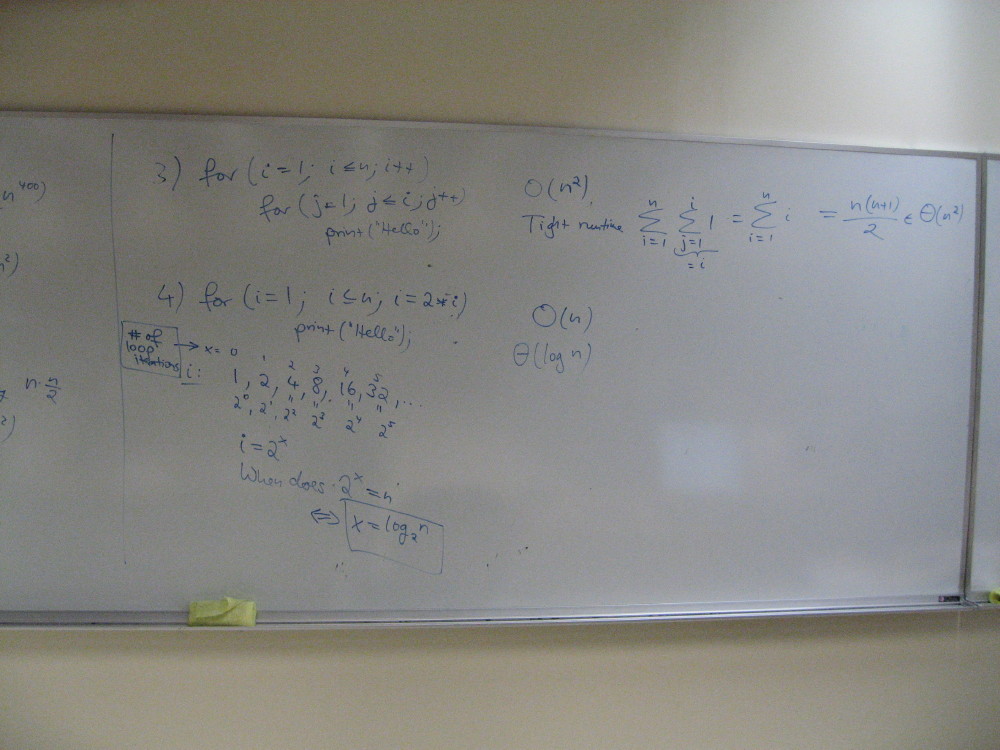 n^400)
n²)
n·n/2
²)
3) for (i=1; i≤n; i++)
for (j=1; j≤i; j++)
print("Hello");
O(n²)
Tight runtime
n i n
∑ ∑ 1 = ∑ i = n(n+1)/2 ∈ Θ(n²)
i=1 j=1 i=1
=i
4) for (i=1; i≤n; i=2*i)
print("Hello");
O(n)
Θ(log n)
# of loop iterations → x= 0 1 2 3 4 5
i: 1, 2, 4, 8, 16, 32, ...
" " " "
2⁰, 2¹, 2² 2³ 2⁴ 2⁵
i=2ˣ
When does 2ˣ=n
⇔ x=log₂n